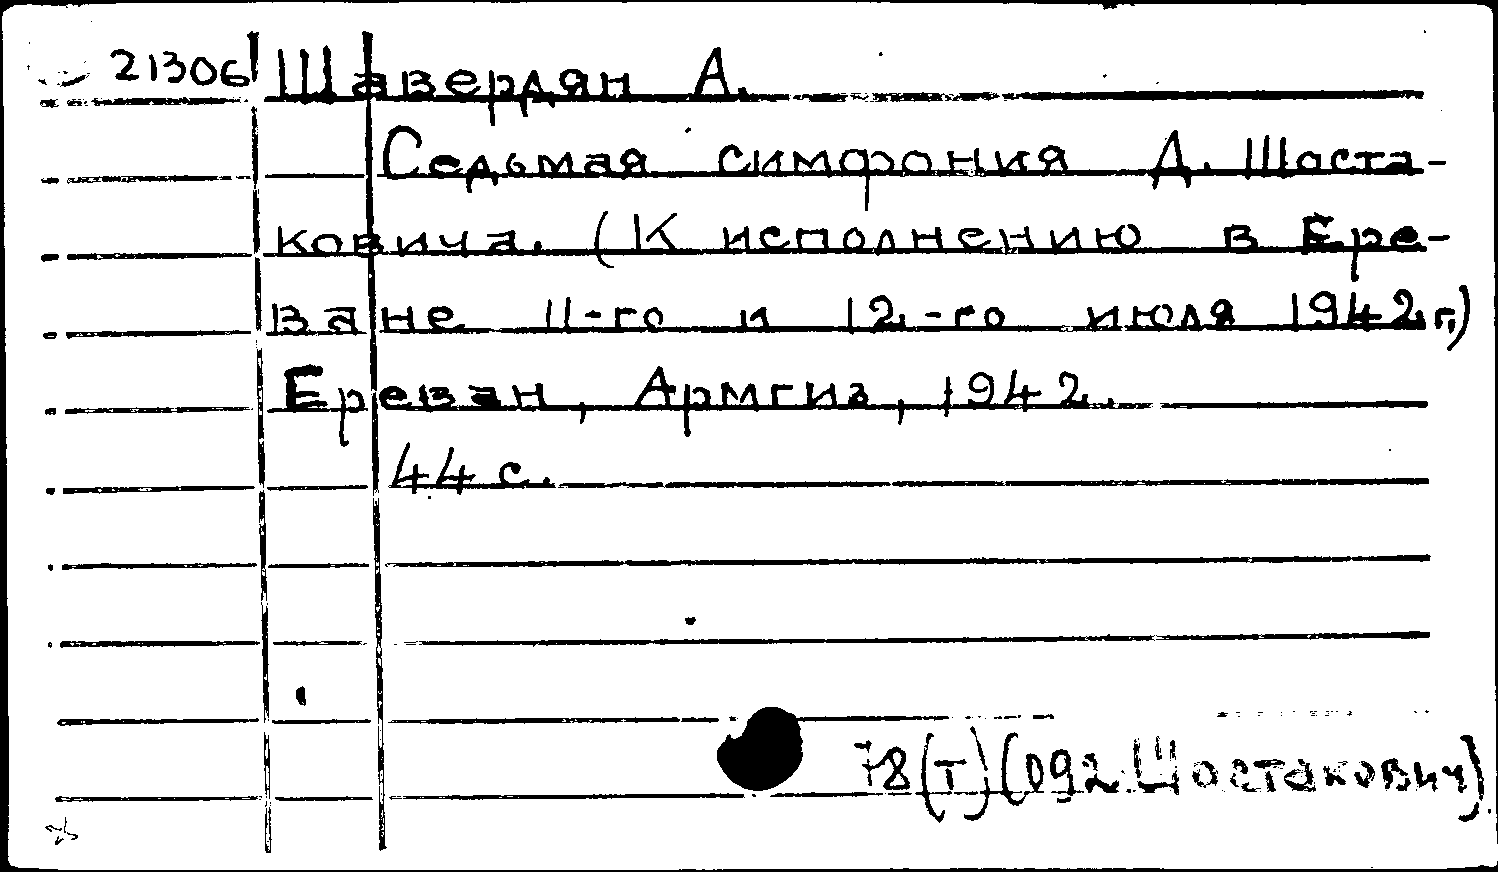 21306 Шавердян А.
Седьмая симфония Д. Шоста-
ковича. (К исполнению в Ере-
ване 11-го и 12-го июля 1942 г.)
Ереван, Армгиз, 1942.
44 с.
78(Т)(092 Шостакович)